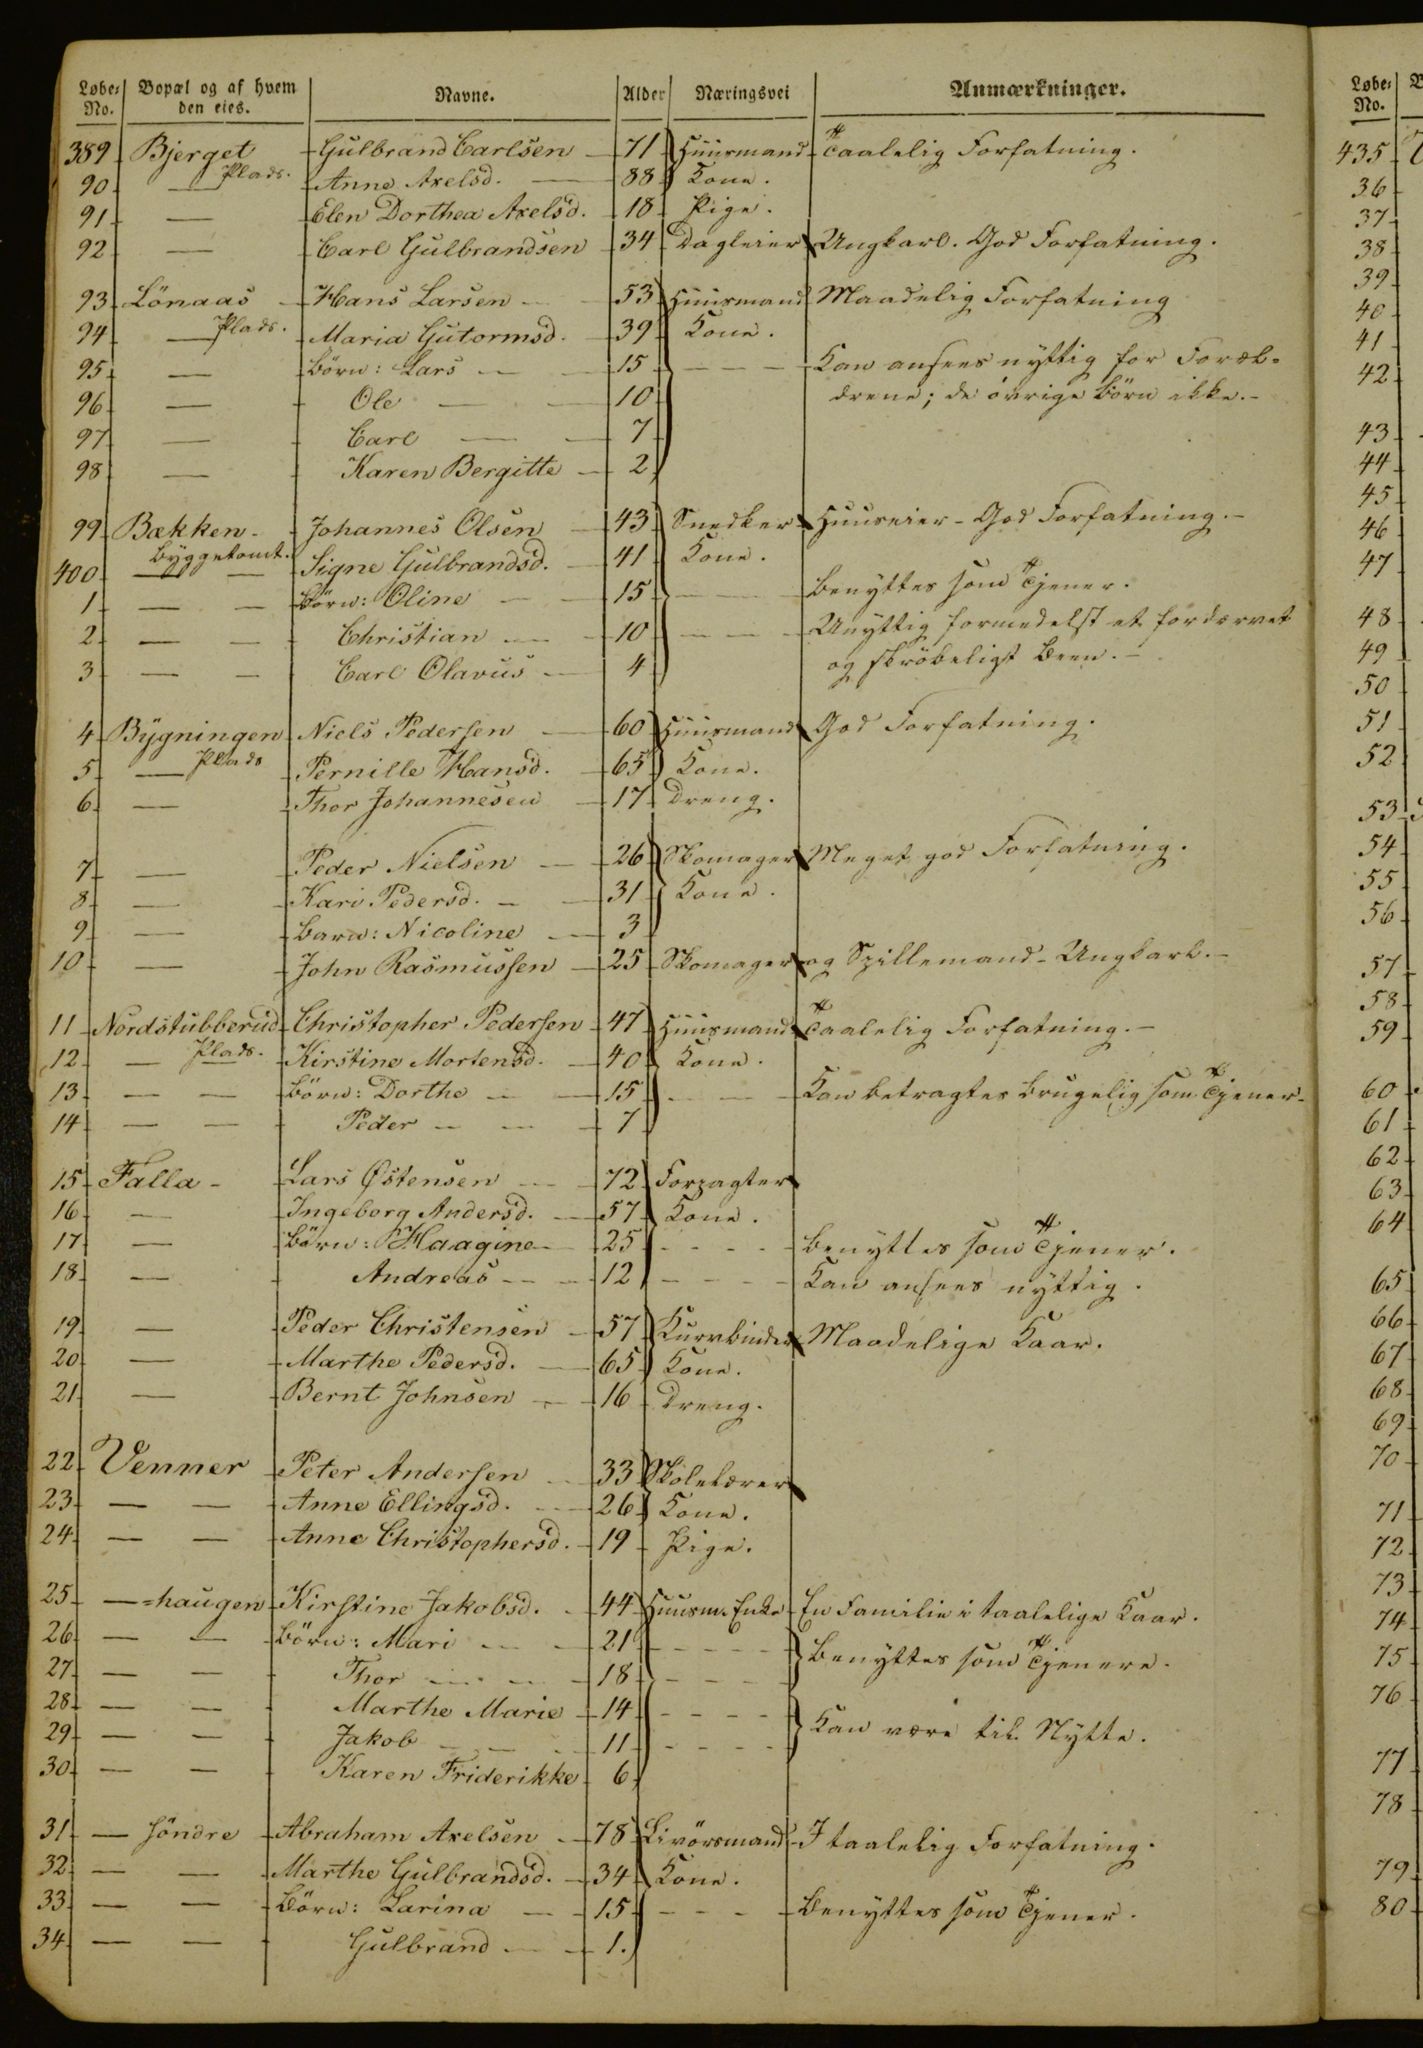 Løbe-No. Bopæl og af hvem den eies. Navne. Alder Næringsvei Anmærkninger.
389 Bjerget Gulbrand Carlsen 71 Huusmand Taalelig Forfatning.
90 — Plads. Anne Axelsd. 88 Kone.
91 — Elen Dorthea Axelsd. 18 Pige.
92 — Carl Gulbrandsen 34 Dagleier Ungkarl. God Forfatning.
93 Lönaas Hans Larsen 53 Huusmand Maadelig Forfatning
94 — Plads. Maria Gutormsd. 39 Kone.
95 — Börn: Lars 15 — Kan ansees nyttig for Foræl-
96 — Ole 10 drene; de övrige Börn ikke.
97 — Carl 7
98 — Karen Bergitte 2
99 Bækken Johannes Olsen 43 Snedker Huuseier - God Forfatning.
400 — Byggetomt. Signe Gulbrandsd. 41 Kone.
1 — Börn: Oline 15 — Benyttes som Tjener.
2 — Christian 10 — Unyttig formedelst et fordærvet
3 — Carl Olavus 4 og skröbeligt Been.
4 Bygningen Niels Pedersen 60 Huusmand God Forfatning.
5 — Plads Pernille Hansd. 65 Kone.
6 — Thor Johannesen 17 Dreng.
7 — Peder Nielsen 26 Skomager Meget god Forfatning.
8 — Kari Pedersd. 31 Kone.
9 — Barn: Nicoline 3
10 — John Rasmussen 25 Skomager og Spillemand - Ungkarl.
11 Nordstubberud Christopher Pedersen 47 Huusmand Taalelig Forfatning.
12 — Plads. Kirstine Mortensd. 40 Kone.
13 — Börn: Dorthe 15 — Kan betragtes brugelig som Tjener.
14 — Peder 7
15 Falla Lars Østensen 72 Forpagter
16 — Ingeborg Andersd. 57 Kone.
17 — Börn: Haagine 25 — Benyttes som Tjener.
18 — Andreas 12 — Kan ansees nyttig.
19 — Peder Christensen 57 Kurvbinder Maadelige Kaar.
20 — Marthe Pedersd. 65 Kone.
21 — Bernt Johnsen 16 Dreng.
22 Venner Peter Andersen 33 Skolelærer
23 — Anne Ellingsd. 26 Kone.
24 — Anne Christophersd. 19 Pige.
25 —=haugen Kirstine Jakobsd. 44 Huusm. Enke En Familie i taalelige Kaar.
26 — Börn: Mari 21 —
27 — Thor 18 — Benyttes som Tjenere.
28 — Marthe Marie 14 —
29 — Jakob 11 — Kan være til Nytte.
30 — Karen Friderikke 6
31 — söndre Abraham Axelsen 78 Livörsmand I taalelig Forfatning.
32 — Marthe Gulbrandsd. 34 Kone.
33 — Börn: Larina 15 — Benyttes som Tjener.
34 — Gulbrand 1.
Løbe-No.
435
36
37
38
39
40
41
42
43
44
45
46
47
48
49
50
51
52
53
54
55
56
57
58
59
60
61
62
63
64
65
66
67
68
69
70
71
72
73
74
75
76
77
78
79
80